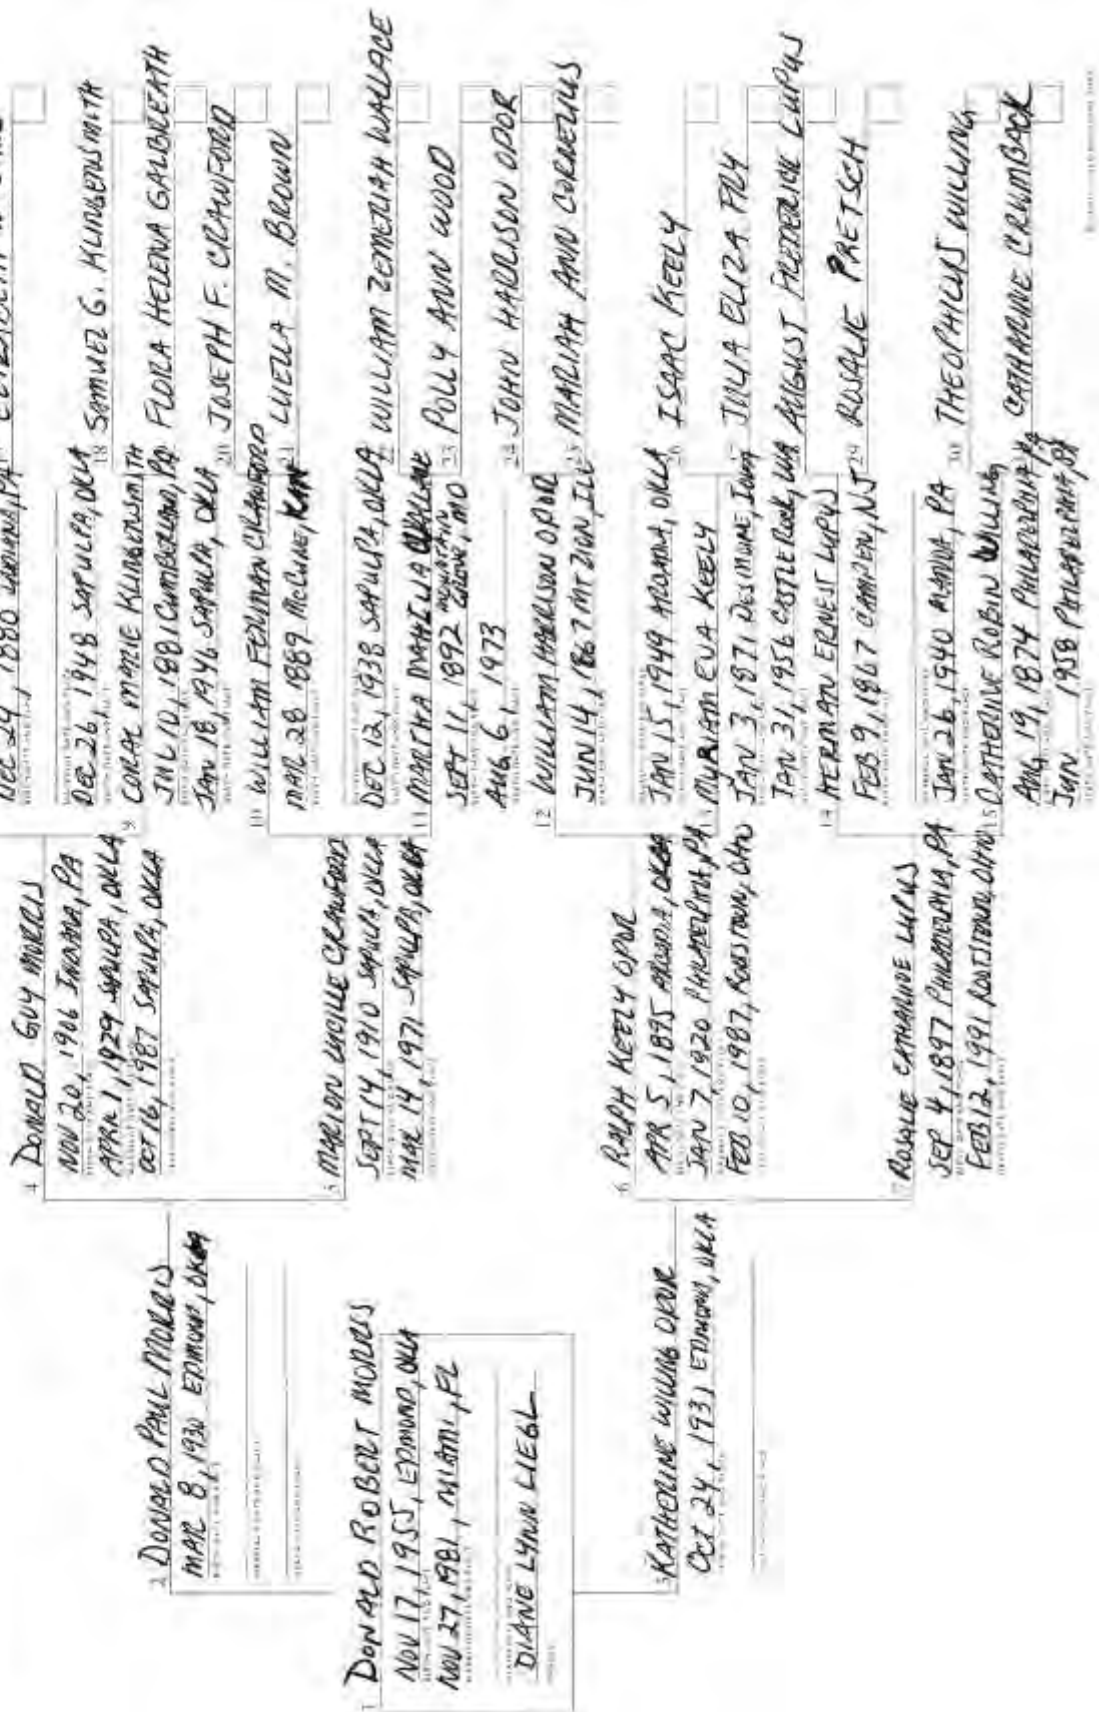 1 DONALD ROBERT MORRIS
NOV 17, 1955, EDMOND, OKLA
NOV 27, 1981, MIAMI, FL
DIANE LYNN LIEGL
2 DONALD PAUL MORRIS
MAR 8, 1930 EDMOND, OKLA
3 KATHERINE WILLING ODOR
OCT 24, 1931 EDMOND, OKLA
4 DONALD GUY MORRIS
NOV 20, 1906 INDIANA, PA
APRIL 1, 1929 SAPULPA, OKLA
OCT 16, 1987 SAPULPA, OKLA
5 MARION LUCILLE CRAWFORD
SEPT 14, 1910 SAPULPA, OKLA
MAR 14, 1971 SAPULPA, OKLA
6 RALPH KEELY ODOR
APR 5, 1895 ARCADIA, OKLA
JAN 7, 1920 PHILADELPHIA, PA
FEB 10, 1987, ROOTSTOWN, OHIO
7 ROSALIE CATHARINE LUPUS
SEP 4, 1897 PHILADELPHIA, PA
FEB 12, 1991 ROOTSTOWN, OHIO
DEC 24, 1880 INDIANA, PA
DEC 26, 1948 SAPULPA, OKLA
9 CORAL MARIE KLINGENSMITH
JUL 10, 1881 CUMBERLAND, PA
JAN 18, 1946 SAPULPA, OKLA
10 WILLIAM FERMAN CRAWFORD
MAR 28 1889 MCCUNE, KAN
DEC 12, 1938 SAPULPA, OKLA
11 MARTHA MAHILIA WALLACE
SEPT 11, 1892 MOUNTAIN GROVE, MO
AUG 6, 1973
12 WILLIAM HARRISON ODOR
JUN 14, 1867 MT ZION, ILL
JAN 15, 1949 AROMA, OKLA
MYRIAM EVA KEELY
JAN 3, 1871 DES MOINE, IOWA
JAN 31, 1956 CASTLE ROCK, WA
14 HERMAN ERNEST LUPUS
FEB 9, 1867 CAMDEN, NJ
JAN 26, 1940 MANOA, PA
15 CATHERINE ROBIN WILLING
AUG 19, 1874 PHILADELPHIA, PA
JUN 1958 PHILADELPHIA, PA
18 SAMUEL G. KLINGENSMITH
FLORA HELENA GALBREATH
20 JOSEPH F. CRAWFORD
21 LUELLA M. BROWN
22 WILLIAM ZEMERIAH WALLACE
23 POLLY ANN WOOD
24 JOHN HARRISON ODOR
25 MARIAH ANN CORNELIUS
26 ISAAC KEELY
JULIA ELIZA FRY
28 AUGUST FREDERICK LUPUS
29 ROSALIE PRETSCH
30 THEOPHILUS WILLING
CATHARINE CRUMBACK